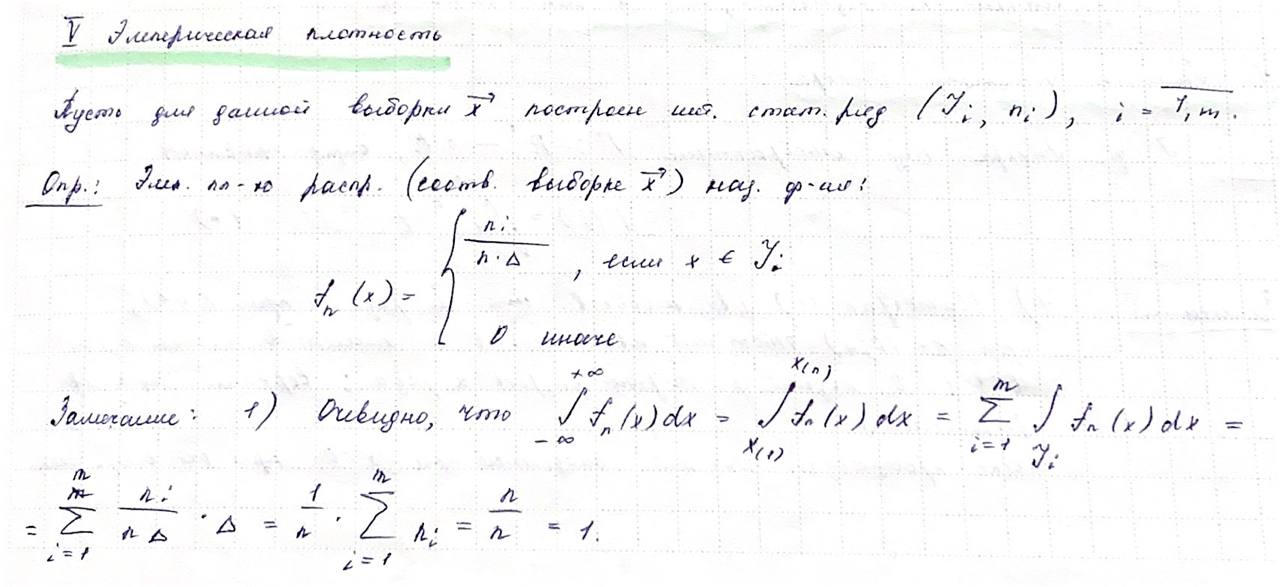 V Эмперическая плотность
Пусть для данной выборки x⃗ построен инт. стат. ряд (Jᵢ, nᵢ), i = 1,m.
Опр.: Эмп. пл-ю распр. (соотв. выборке x⃗) наз. ф-ия:
fₙ(x) = { nᵢ / (n · Δ), если x ∈ Jᵢ
0 иначе
Замечание: 1) Очевидно, что ∫_{-∞}^{+∞} fₙ(x)dx = ∫_{x(1)}^{x(n)} fₙ(x)dx = ∑_{i=1}^{m} ∫_{Jᵢ} fₙ(x)dx =
= ∑_{i=1}^{m} nᵢ / (nΔ) · Δ = 1/n · ∑_{i=1}^{m} nᵢ = n/n = 1.